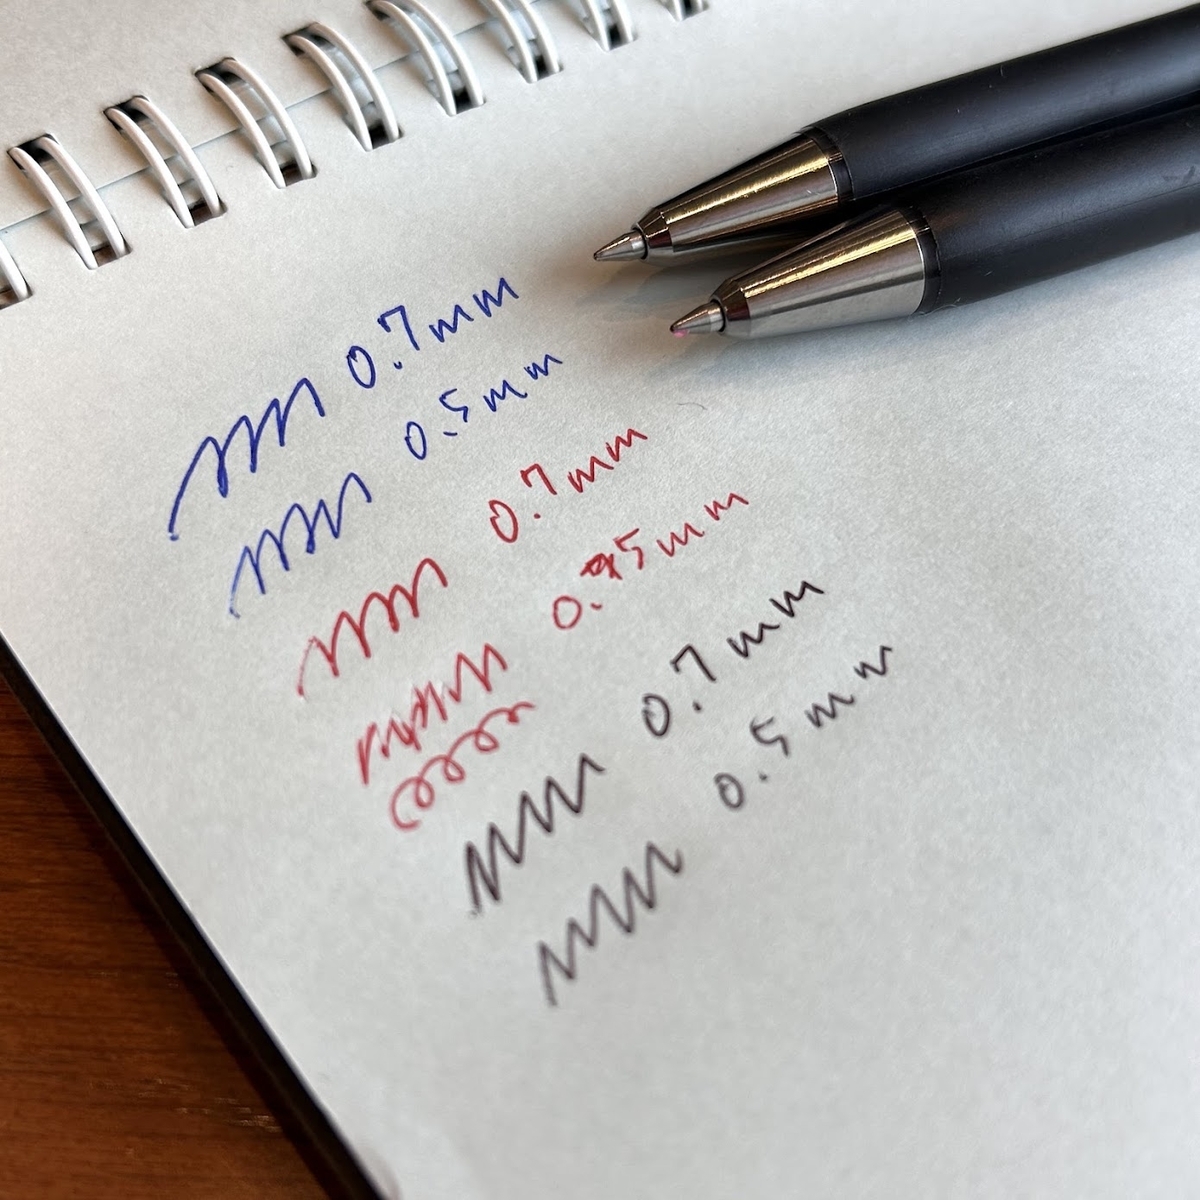 0.7mm
0.5mm
0.7mm
0.5mm
0.7mm
0.5mm